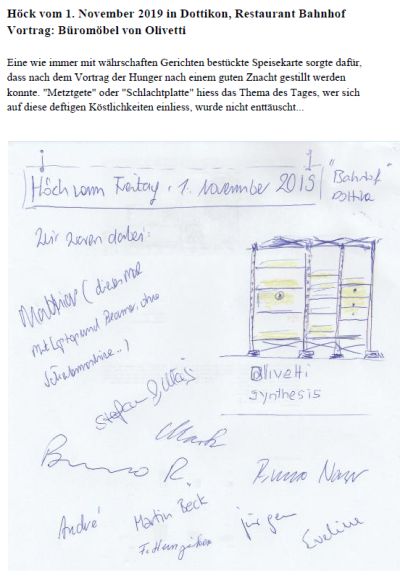 Höck vom 1. November 2019 in Dottikon, Restaurant Bahnhof
Vortrag: Büromöbel von Olivetti
Eine wie immer mit währschaften Gerichten bestückte Speisekarte sorgte dafür,
dass nach dem Vortrag der Hunger nach einem guten Znacht gestillt werden
konnte. "Metztgete" oder "Schlachtplatte" hiess das Thema des Tages, wer sich
auf diese deftigen Köstlichkeiten einliess, wurde nicht enttäuscht...
Höck vom Freitag, 1. November 2019
"Bahnhof"
Dottikon
Wir waren dabei:
Matthias (diesmal
mit Laptop und Beamer, ohne
Schreibmaschine..)
Olivetti
synthesis
Stefan &
Mark
Bruno R.
Bruno
André
Martin Beck
Jürgen
Eveline